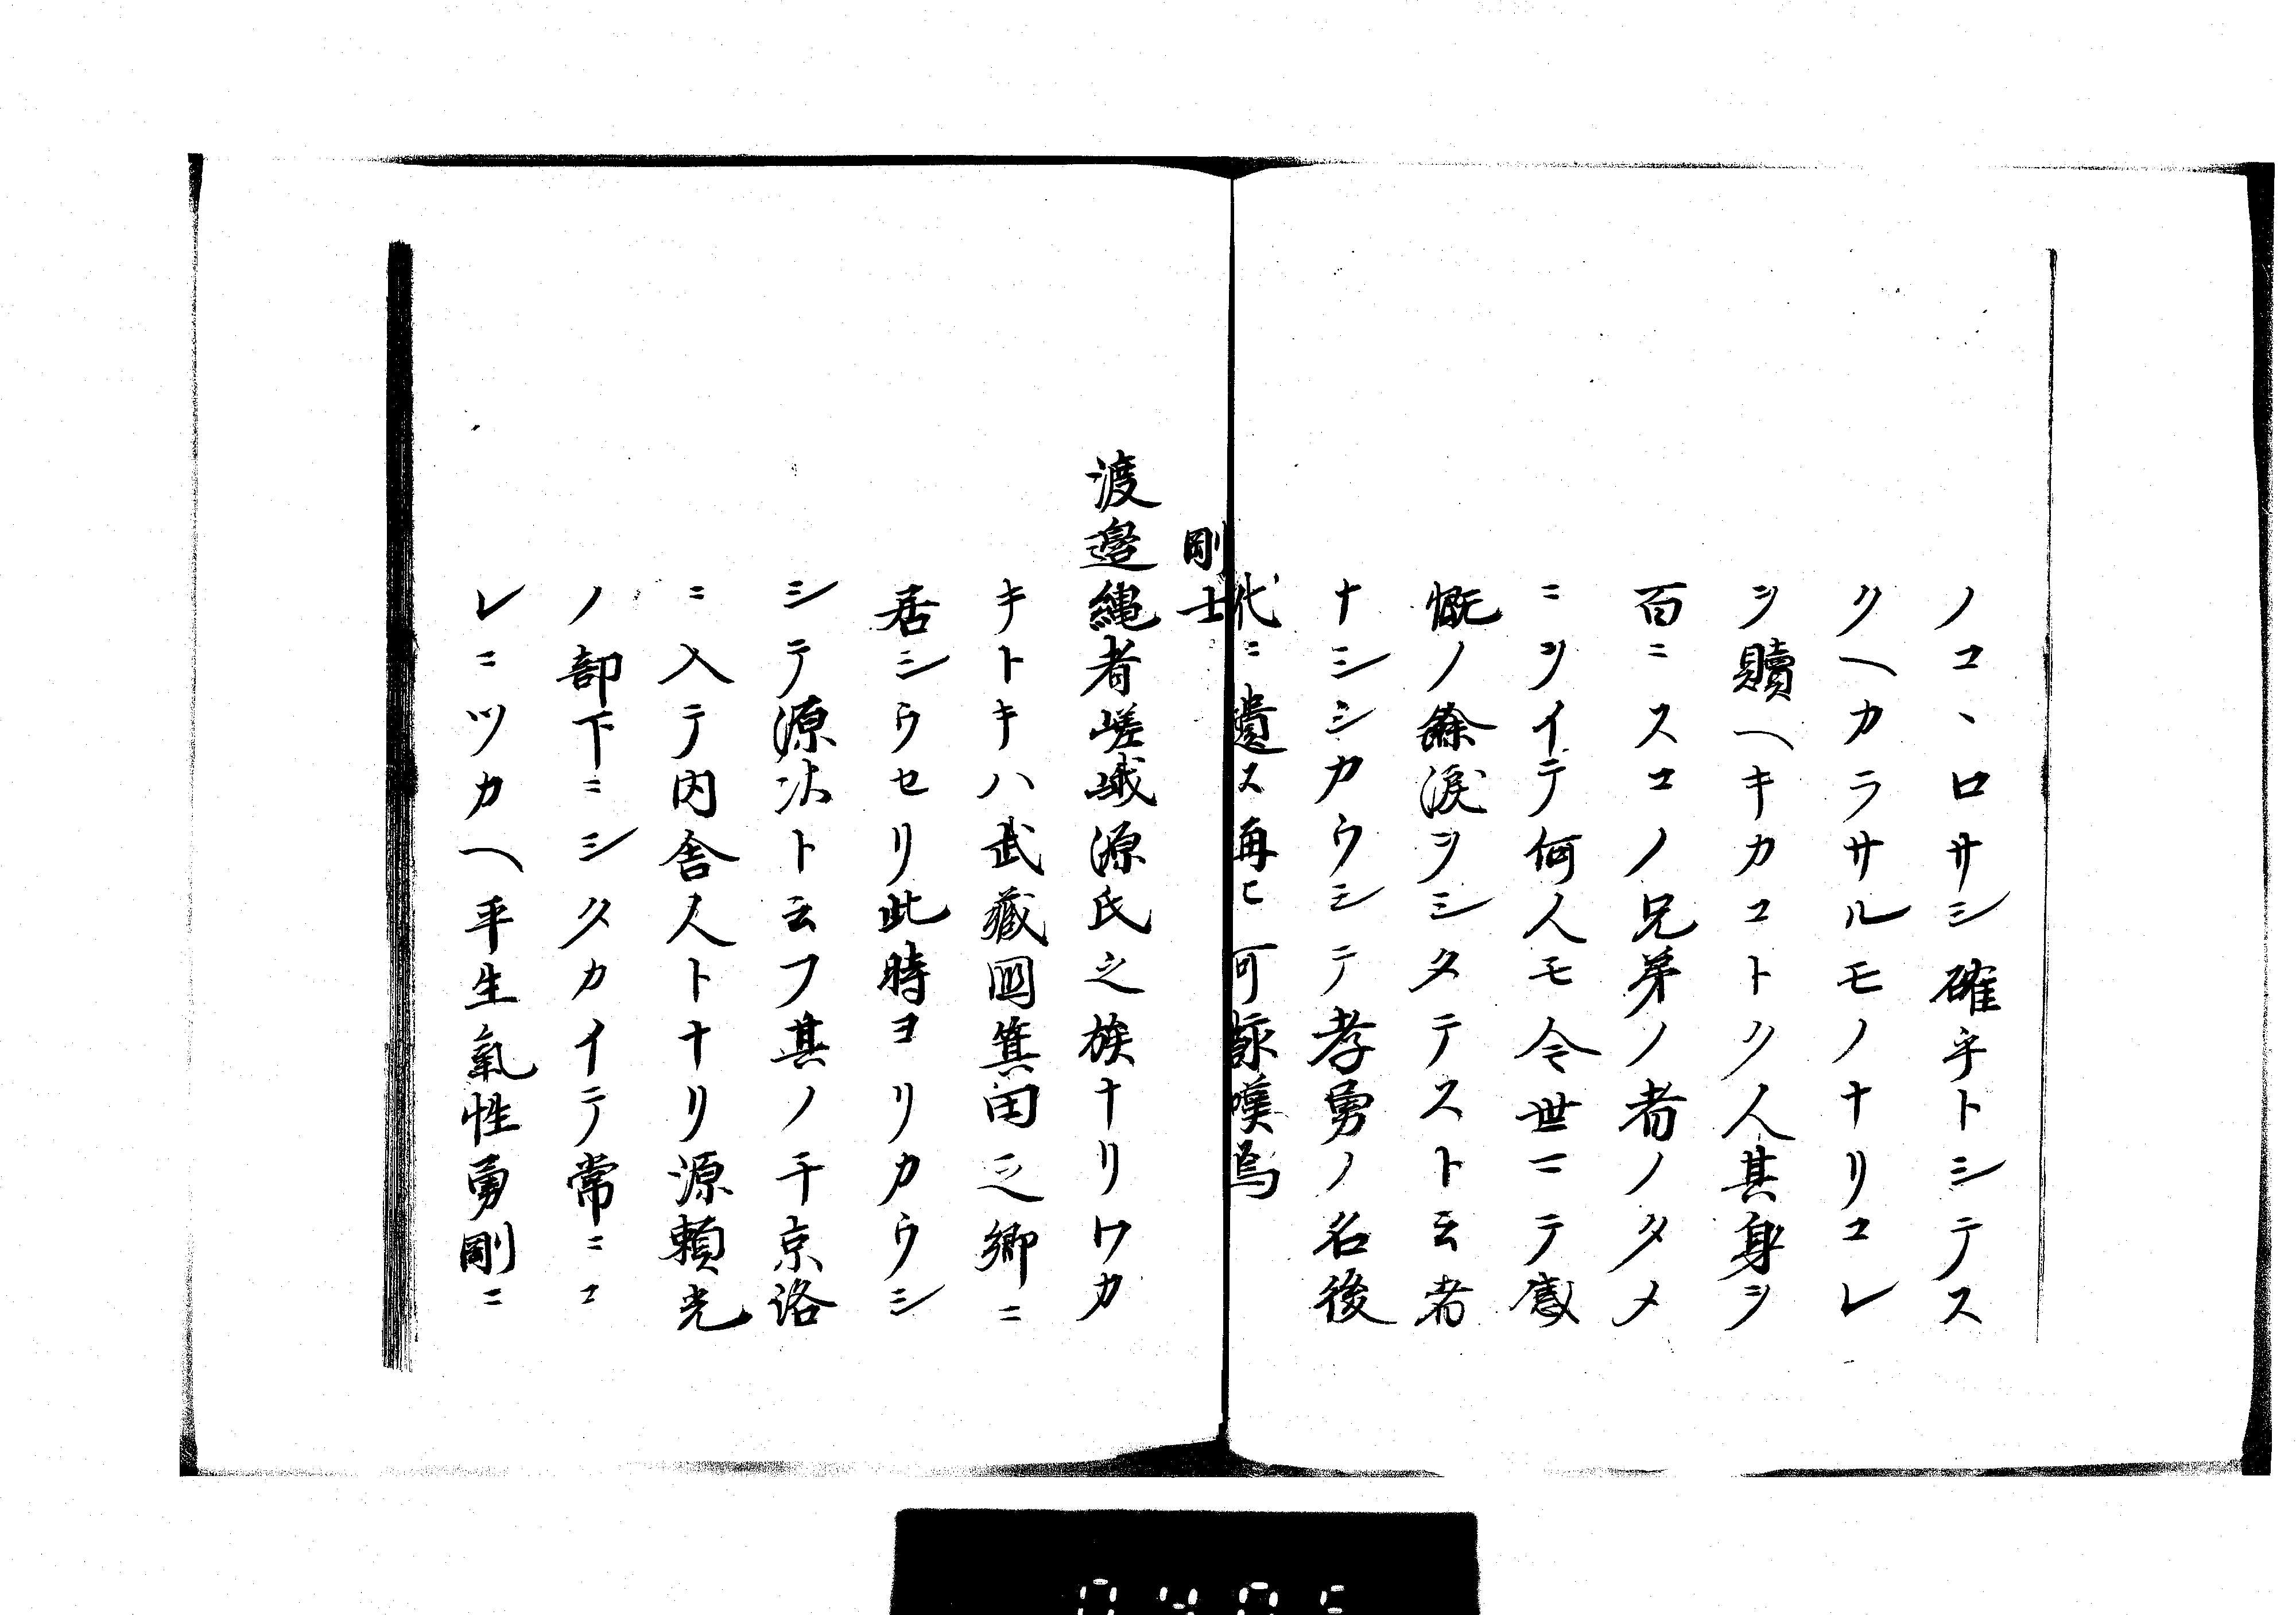 ノコヽロサシ確乎トシテス
クヘカラサルモノナリコレ
ヲ贖ヘキカコトク人其身ヲ
百ニスコノ兄弟ノ者ノタメ
ニツイテ何人モ今世ニテ感
慨ノ餘涙ヲシタテスト云者
ナシシカウシテ孝勇ノ名後
代ニ遺ス再ヒ可詠嘆焉
剛士
渡邉縄者嵯峨源氏之族ナリワカ
キトキハ武藏國箕田之郷ニ
居シウセリ此時ヨリカウシ
シテ源次ト云フ其ノ千京洛
ニ入テ内舎人トナリ源頼光
ノ部下ニシタカイテ常ニコ
レニツカヘ平生氣性勇剛ニ